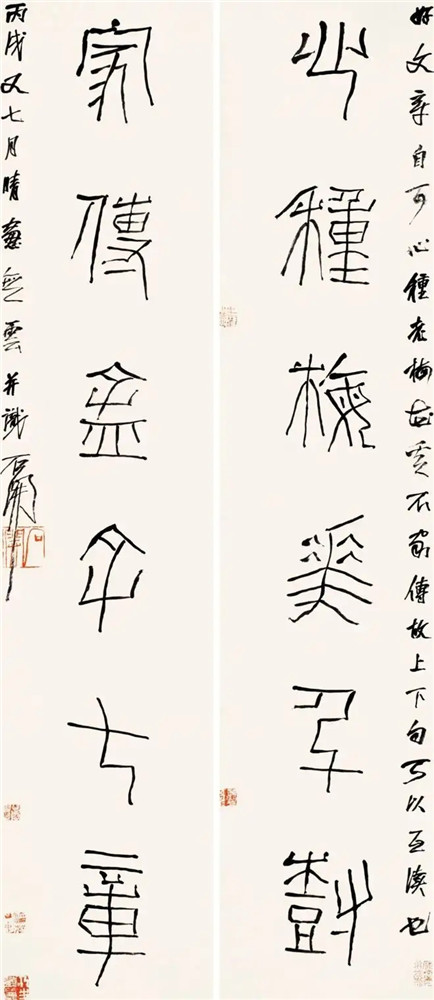 好文章自可心種老梅花豈不家傳故上下句可以互讀也
心種梅華千樹
家傳孟子七章
丙戌又七月晴窗無雲并識石開